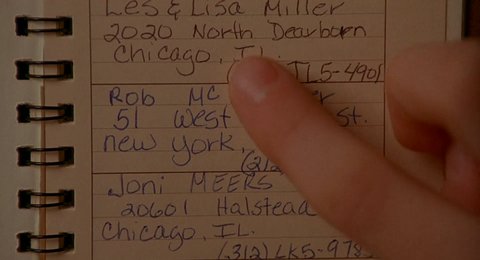 Les & Lisa Miller
2020 North Dearborn
Chicago, IL.
JL5-4901
Rob Mc
51 West St.
new york,
(212
Joni MEERS
20601 Halstead
Chicago, IL.
(312) LK5-978